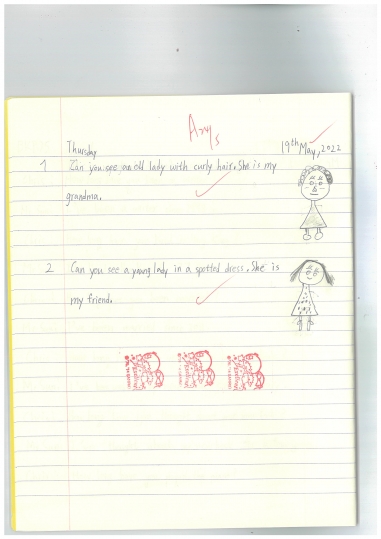 Thursday 19th May, 2022
1 Can you see an old lady with curly hair. She is my
grandma.
2 Can you see a young lady in a spotted dress. She is
my friend.